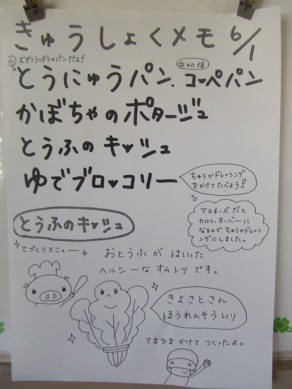 きゅうしょくメモ 6/1
むぎごはんはパンだよ!
とうにゅうパン、コッペパン
かぼちゃのポタージュ
とうふのキッシュ
ゆでブロッコリー
ちゅうかドレッシング
をかけてたべよう!
マヨネーズだと
カロリーオーバーに
なるので、ちゅうかドレッシ
ングにしました。
とうふのキッシュ
てづくりメニュー
おとうふがはいった
ヘルシーなオムレツです。
きよさとさん
ほうれんそういり
てまひまかけてつくったよ。